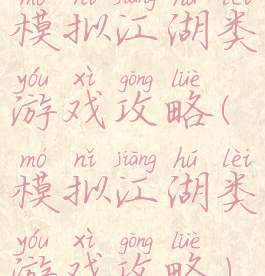 mó nǐ jiāng hú lèi
模拟江湖类
yóu xì gōng lüè
游戏攻略(
mó nǐ jiāng hú lèi
模拟江湖类
yóu xì gōng lüè
游戏攻略)